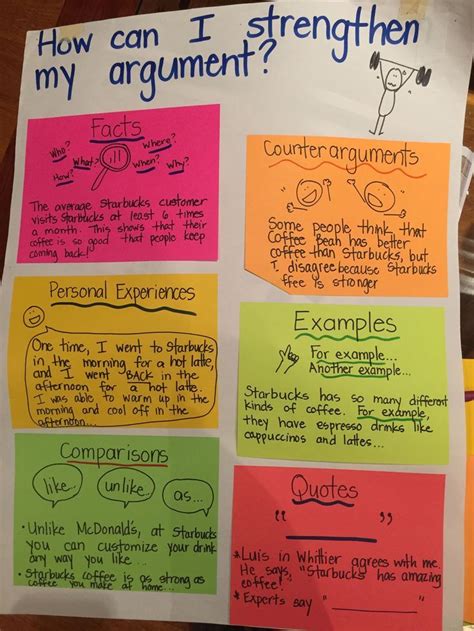 How can I strengthen
my argument?
Facts
Who?
Where?
What?
When?
Why?
How?
The average Starbucks customer
visits Starbucks at least 6 times
a month. This shows that their
coffee is so good that people keep
coming back!
Counterarguments
Some people think that
Coffee Bean has better
coffee than Starbucks, but
I disagree because Starbucks
ffee is stronger
Personal Experiences
One time, I went to Starbucks
in the morning for a hot latte,
and I went BACK in the
afternoon for a hot latte.
I was able to warm up in the
morning and cool off in the
afternoon...
Examples
For example...
Another example...
Starbucks has so many different
kinds of coffee. For example,
they have espresso drinks like
cappuccinos and lattes...
Comparisons
like...
unlike...
as...
• Unlike McDonald's, at Starbucks
you can customize your drink
any way you like...
• Starbucks coffee is as strong as
coffee you make at home...
Quotes
" ________ "
• Luis in Whittier agrees with me.
He says, "Starbucks has amazing
coffee!"
• Experts say "________"